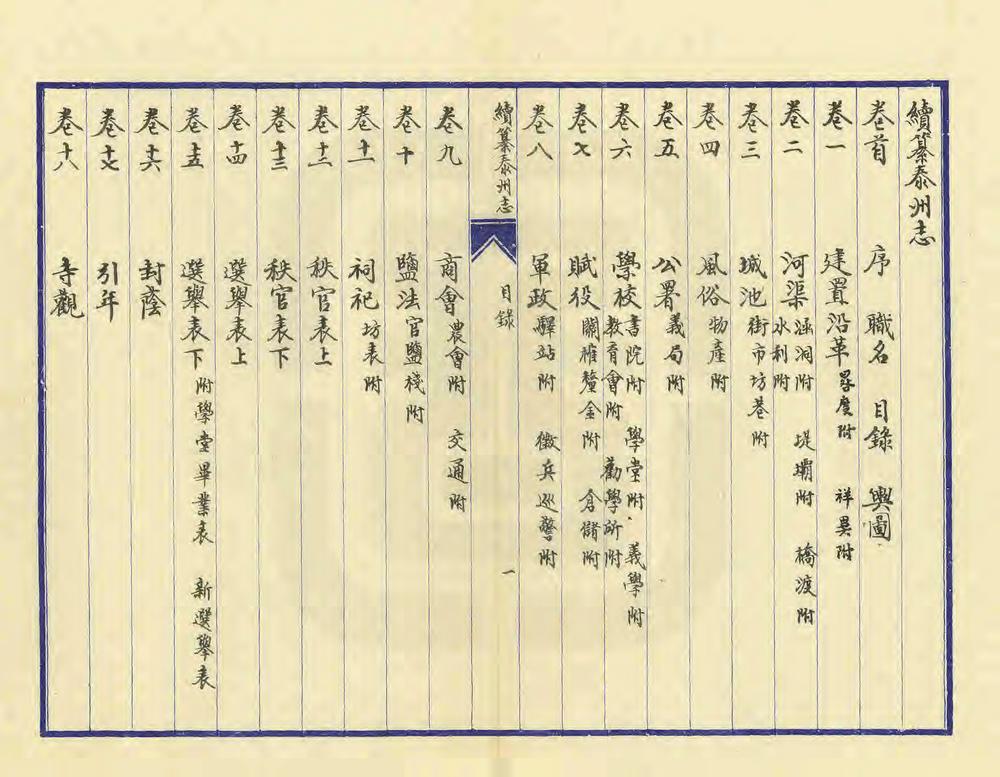 續纂泰州志
卷首 序 職名 目錄 輿圖
卷一 建置沿革 晷度附 祥異附
卷二 河渠 涵洞附 堤壩附 橋渡附 水利附
卷三 城池 街市坊巷附
卷四 風俗 物產附
卷五 公署 義局附
卷六 學校 書院附 學堂附 義學附 教育會附 勸學所附
卷七 賦役 關榷釐金附 倉儲附
卷八 軍政 驛站附 徵兵巡警附
續纂泰州志 目錄 一
卷九 商會 農會附 交通附
卷十 鹽法 官鹽棧附
卷十一 祠祀 坊表附
卷十二 秩官表上
卷十三 秩官表下
卷十四 選舉表上
卷十五 選舉表下 附學堂畢業表 新選舉表
卷十六 封蔭
卷十七 引年
卷十八 寺觀